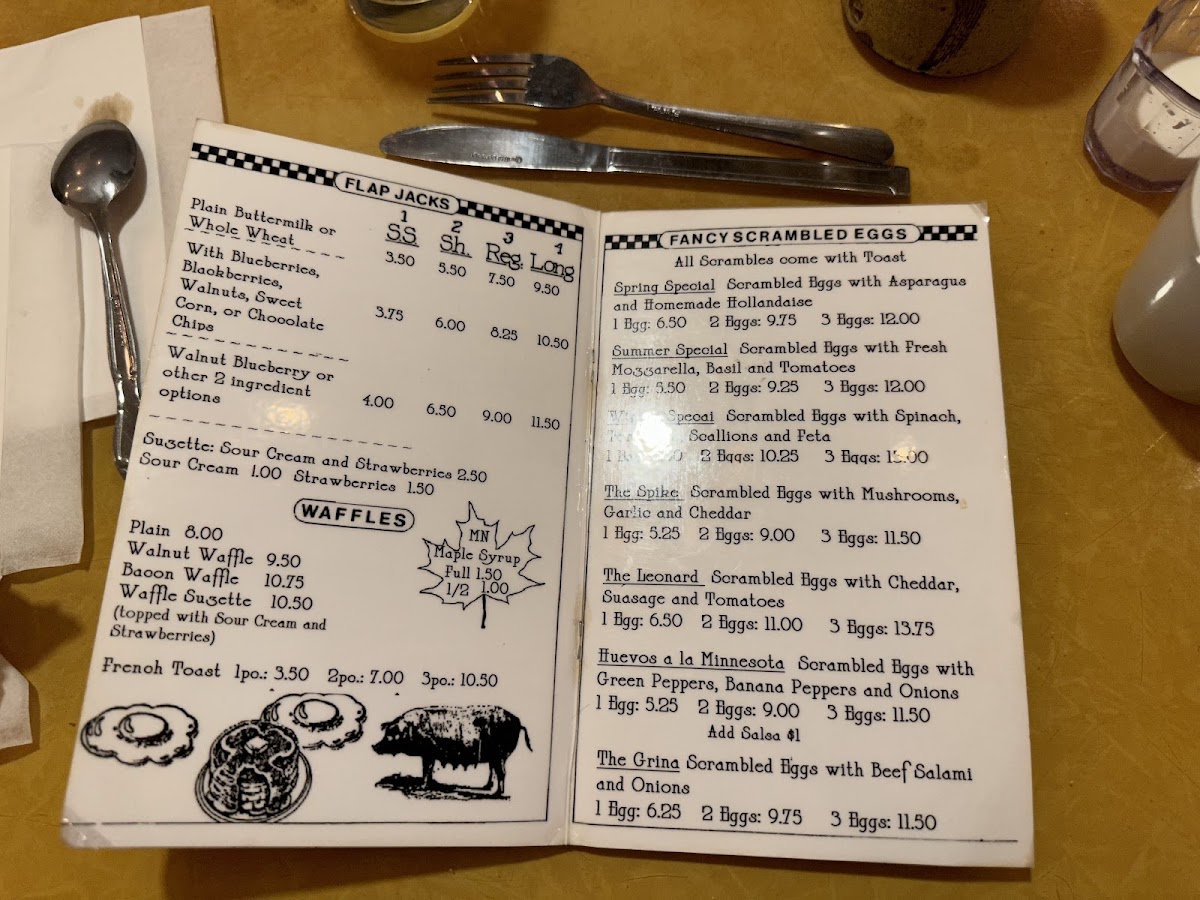 FLAP JACKS
1 2 3 4
SS. Sh. Reg. Long
Plain Buttermilk or
Whole Wheat 3.50 5.50 7.50 9.50
With Blueberries,
Blackberries,
Walnuts, Sweet
Corn, or Chocolate
Chips 3.75 6.00 8.25 10.50
Walnut Blueberry or
other 2 ingredient
options 4.00 6.50 9.00 11.50
Suzette: Sour Cream and Strawberries 2.50
Sour Cream 1.00 Strawberries 1.50
WAFFLES
Plain 8.00
Walnut Waffle 9.50
Bacon Waffle 10.75
Waffle Suzette 10.50
(topped with Sour Cream and
Strawberries)
MN
Maple Syrup
Full 1.50
1/2 1.00
French Toast 1pc.: 3.50 2pc.: 7.00 3pc.: 10.50
FANCY SCRAMBLED EGGS
All Scrambles come with Toast
Spring Special Scrambled Eggs with Asparagus
and Homemade Hollandaise
1 Egg: 6.50 2 Eggs: 9.75 3 Eggs: 12.00
Summer Special Scrambled Eggs with Fresh
Mozzarella, Basil and Tomatoes
1 Egg: 5.50 2 Eggs: 9.25 3 Eggs: 12.00
Specai Scrambled Eggs with Spinach,
Scallions and Feta
2 Eggs: 10.25 3 Eggs:
The Spike Scrambled Eggs with Mushrooms,
Garlic and Cheddar
1 Egg: 5.25 2 Eggs: 9.00 3 Eggs: 11.50
The Leonard Scrambled Eggs with Cheddar,
Suasage and Tomatoes
1 Egg: 6.50 2 Eggs: 11.00 3 Eggs: 13.75
Huevos a la Minnesota Scrambled Eggs with
Green Peppers, Banana Peppers and Onions
1 Egg: 5.25 2 Eggs: 9.00 3 Eggs: 11.50
Add Salsa $1
The Grina Scrambled Eggs with Beef Salami
and Onions
1 Egg: 6.25 2 Eggs: 9.75 3 Eggs: 11.50